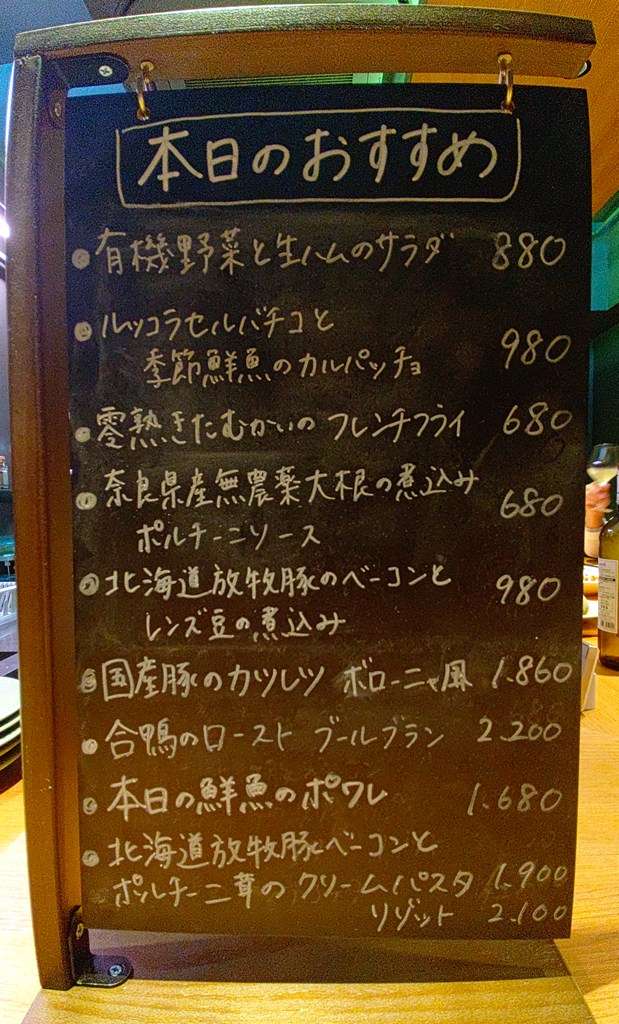 本日のおすすめ
有機野菜と生ハムのサラダ 880
ルッコラセルバチコと
季節鮮魚のカルパッチョ 980
零熟きたむかいの フレンチフライ 680
奈良県産無農薬大根の煮込み
ポルチーニソース 680
北海道放牧豚のベーコンと
レンズ豆の煮込み 980
国産豚のカツレツ ボローニャ風 1.860
合鴨のロースト ブールブラン 2.200
本日の鮮魚のポワレ 1.680
北海道放牧豚ベーコンと
ポルチーニ茸の クリームパスタ 1.900
リゾット 2.100